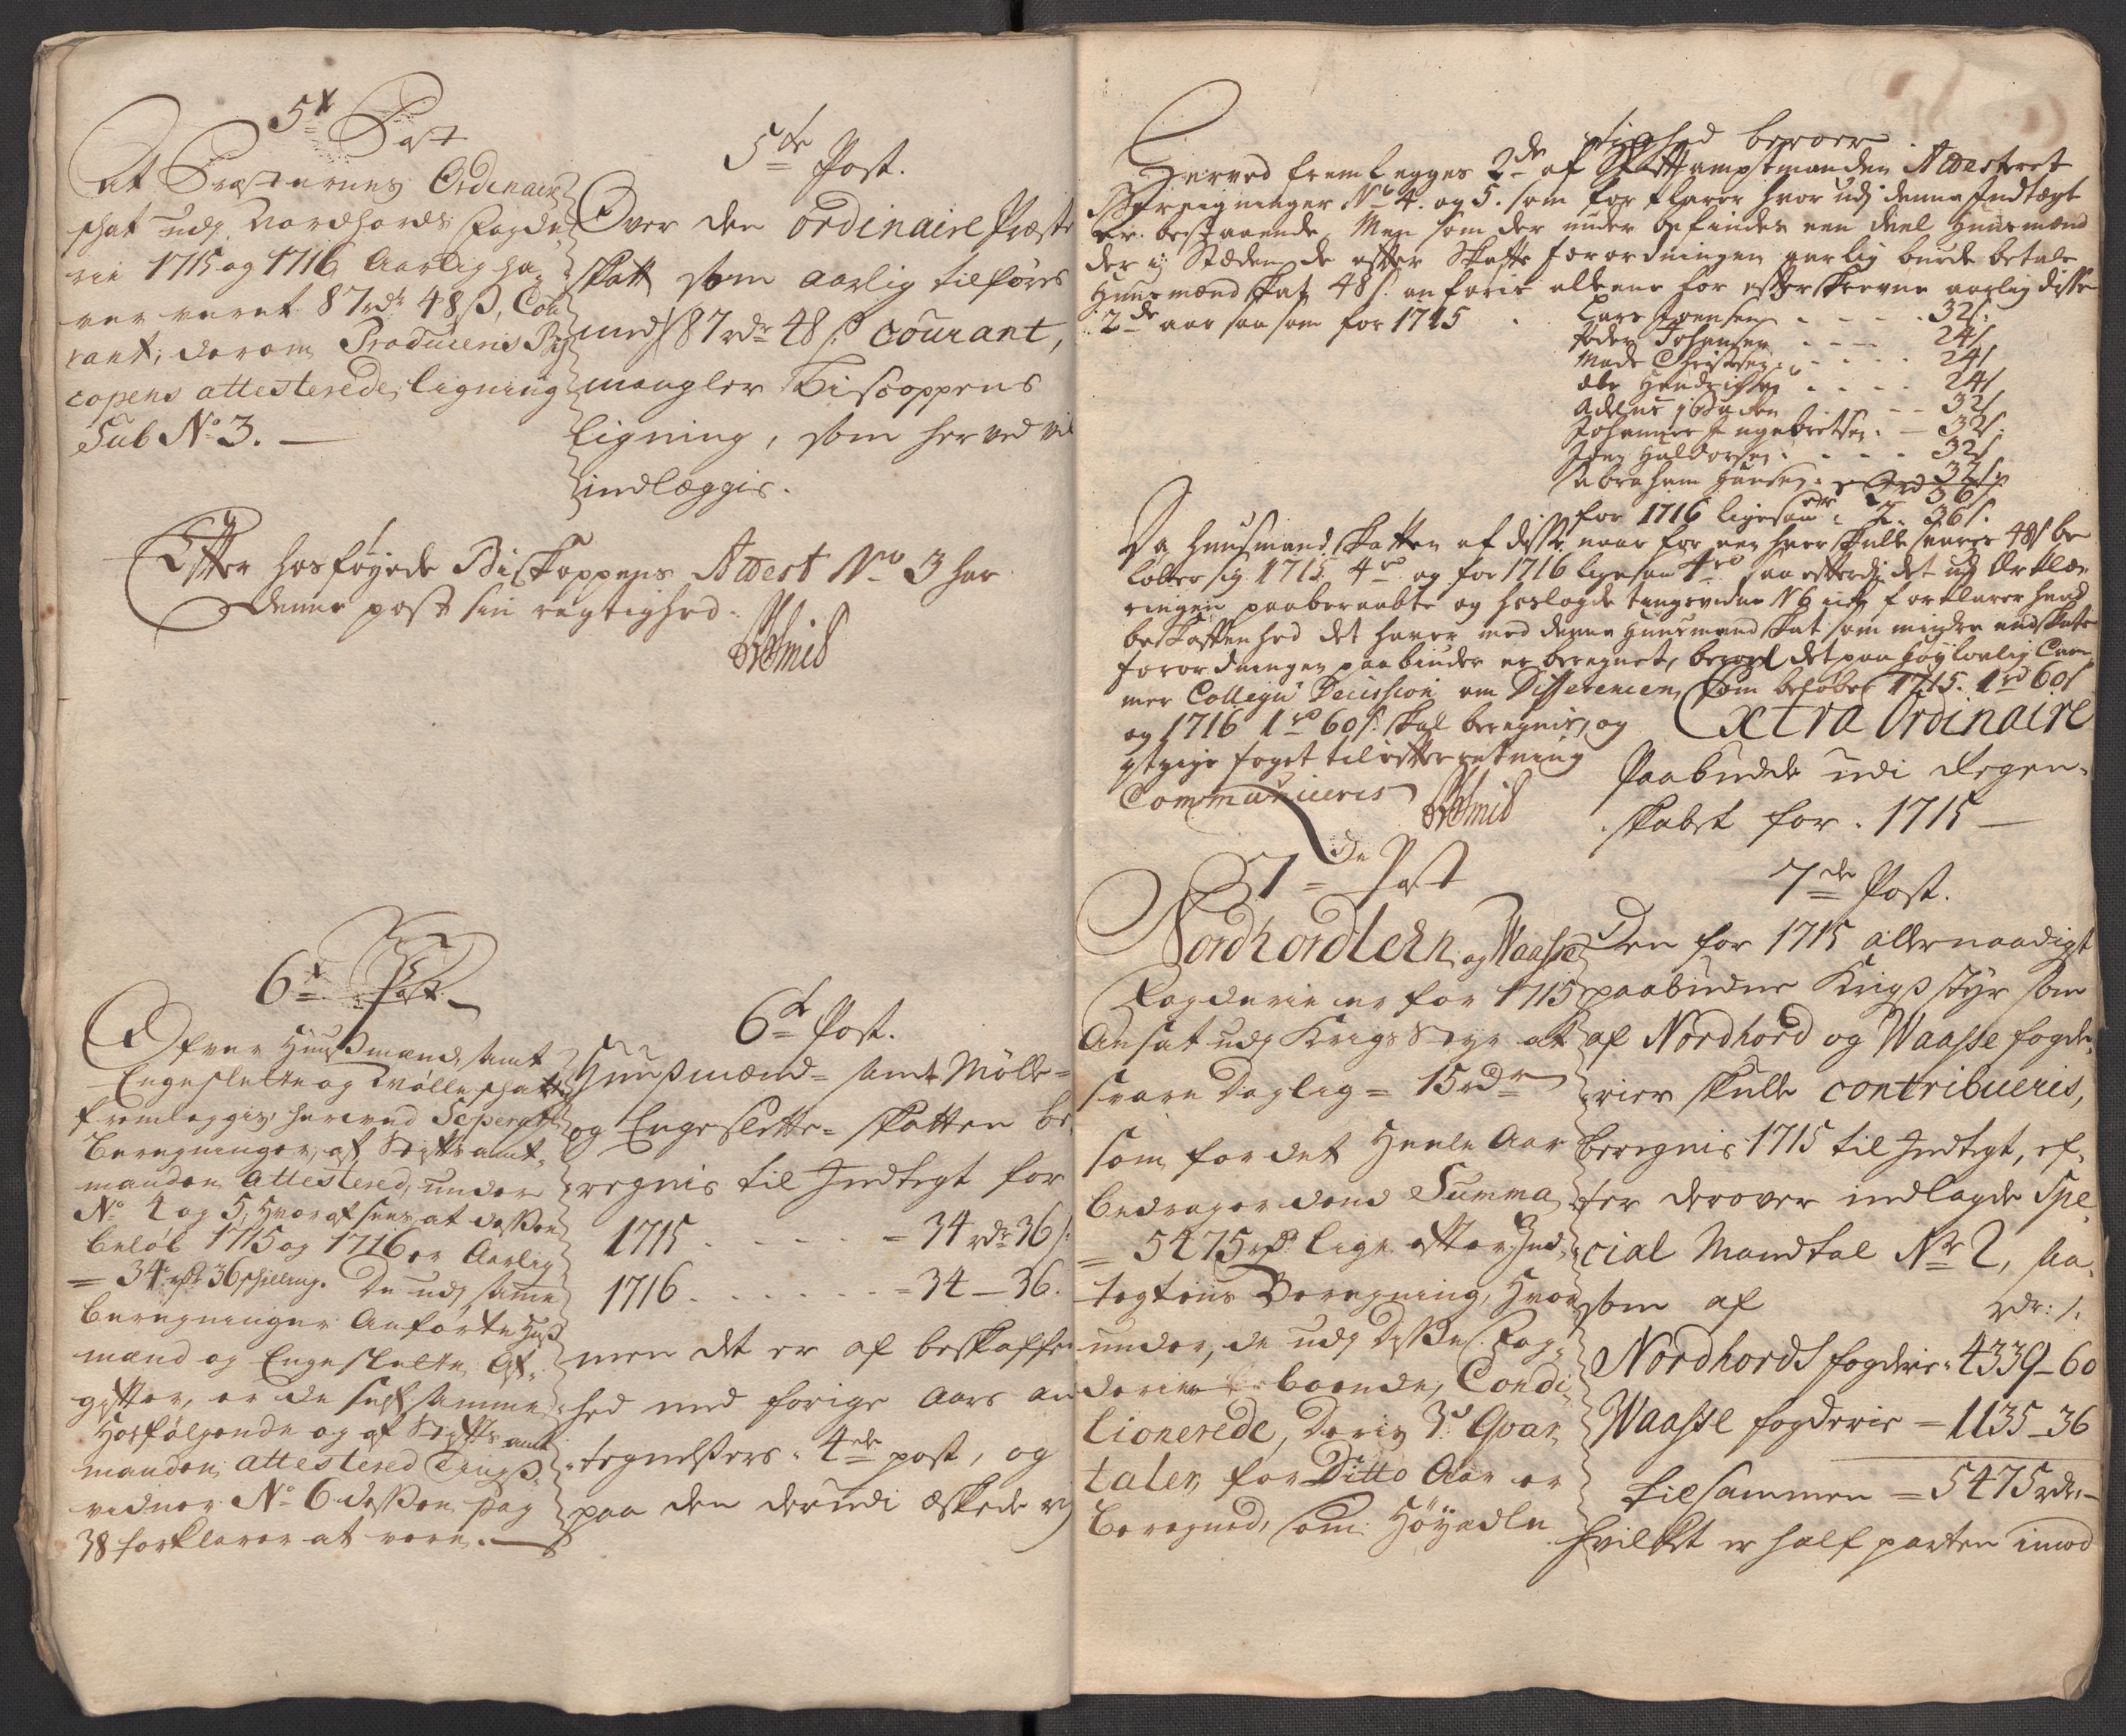 5te Post
At Præsternes Ordinair
schat udj Nordhords Fogde
rie 1715 og 1716 Aarlig ha-
ver veret 87 rdr 48 ß, Cou
rant, derom Producens Bis
copens attesterede ligning
Sub No 3.
5te Post.
Over den ordinaire Præste
skatt som aarlig tilføres
med 87 rdr 48 ß: courant,
mangler Biscoppens
ligning, som herved vil
indlæggis.
Efter hosføyede Biskoppens Attest No 3 har
denne post sin rigtighed.
6te Post
Ofver Huusmænd samt
Engeslette og Mølle schatt
fremleggis herved Seperate
Beregninger, af Stiftamt-
manden Attestered, under
No 4 og 5, Hvoraf sees at dessen
beløb 1715 og 1716 er Aarlig
= 34 rdr 36 schilling. De udj samme
beregninger Anførte Huus
mænd og Engeslette Af-
gifter, er de self samme
Hosfølgende og af Stiftsamt
manden attestered Tings-
vidner No 6 dessen pag
38 forklarer at vere.
6te Post.
Huusmænd- samt Mølle-
og Engeslette- skatten be
regnis til Indtegt for
1715 . . . . . = 34 rdr 36 ß:
1716 . . . . . . = 34 - 36.
men det er af beskaffen
hed med forige Aars an
tegnelsers 4de post, og
paa den derudi æskede rig
tighed beroer
Herved fremlegges 2de af Stiftamptmanden Attesteret
Bereigninger No 4. og 5. som forklarer hvor udj denne Indtægt
er bestaaende, Men som der under befindes een deel Huusmænd
der i Stæden de efter Skatte forordningen aarlig burde betale
Huusmænd skat 48 ß. anføris alleene for efterskrevne aarlig disse
2de aar saasom for 1715
Lars Joensen . . . . 32 ß:
Peder Johansen . . . . 24 ß
Mads Christensen . . . . 24 ß
Ole Hendrichsen . . . . 24 ß
32 ß
Johannes Ingebretsen . - 32 ß:
Joen Haldorsen . . . . 32 ß
Abraham Hansen 32 ß
2 rd 36 ß
for 1716 ligesaa 2 - 36 ß.
Da Huusmand skatten af disse naar for een hver skulle svares 48 ß be
løber sig 1715 4 rd og for 1716 ligesaa 4 rd saa efterdj det udj Erklæ
ringen paaberaabte og hoslagde tingsvidne N 6 icke forklarer hvad
beskaffenhed det haver med denne Huusmand skat som mindre end skatte
forordningen paabinder er beregnet, beroer det paa Høylovlig Cam
mer Collegii Decission om Differencen, som beløber 1715. 1 rd 60 ß
og 1716 1 rd 60 ß: skal beregnis, og
foget til efterretning
Communiceris
Extra Ordinaire
Paabudde udi Regen-
skabet for 1715
7de Post
Nordhordlehn og Waasse
Fogderie er for 1715
Ansat udj Krigs Styr at
svare Daglig = 15 rdr
som for det Heele Aar
bedrager dend Summa
= 5475 rdr lige efter Ind-
tegtens Beregning, Hvor
under, de udj Disse Fog-
derier boende, Condi
tionerede, Deris 3de Qvar
taler, for Ditto Aar er
beregned, som Høyædle
7de Post.
Den for 1715 allernaadigst
paabudne Krigs styr som
af Nordhord og Waasse fogde-
rier skulle contribueris,
beregnis 1715 til Indtegt, ef-
ter derover indlagde Spe
cial Mandtal No 2, saa-
som af rdr: ß.
Nordhords fogderie = 4339 - 60
Waasse fogderie = 1135 - 36
tilsammen = 5475 rdr -
hvilket er half parten imod